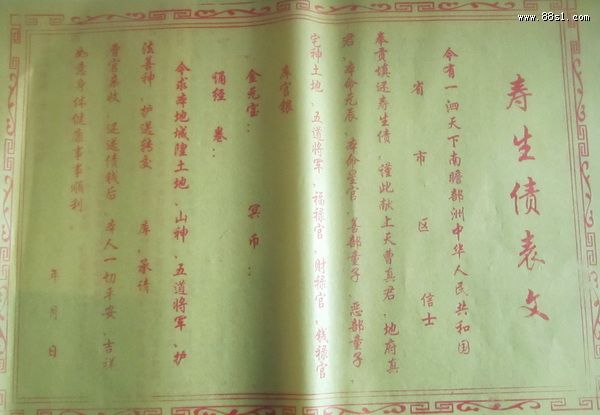 寿生债表文
今有一泗天下南瞻部洲中华人民共和国
省 市 区 信士
奉责填还寿生债，谨此献上天曹真君、地府真
君、本命元辰、本命星官、善部童子、恶部童子、
宅神土地、五道将军、福禄官、财禄官、钱禄官
库官银
金元宝： 冥币：
诵经 卷：
今求本地城隍土地、山神、五道将军、护
法善神、护送转交 库、承请
曹官亲收，还送债钱后，本人一切平安、吉祥
如意身体健康事事顺利。
年 月 日
www.88s1.com